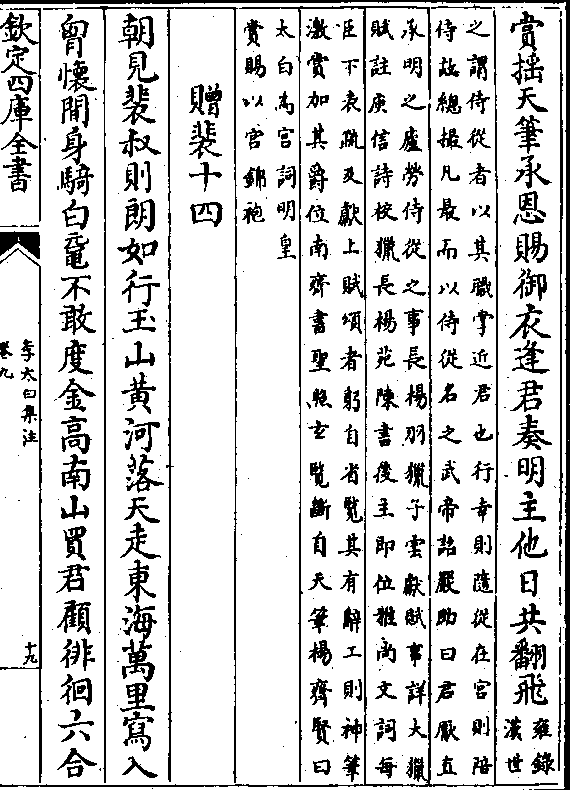 賞揺天筆承恩賜御衣逢君奏明主他日共翻飛
雍錄
漢世
之謂侍從者以其職掌近君也行幸則隨從在宮則陪
侍故總撮凡最而以侍從名之武帝詔嚴助曰君厭直
承明之廬勞侍從之事長楊羽獵子雲獻賦事詳大獵
賦註庾信詩校獵長楊苑陳書後主即位雅尚文詞每
臣下表疏及獻上賦頌者躬自省覽其有辭工則神筆
激賞加其爵位南齊書聖照玄覽斷自天筆楊齊賢曰
太白為宮詞明皇
賞賜以宮錦袍
贈裴十四
朝見裴叔則朗如行玉山黄河落天走東海萬里寫入
胷懷間身騎白黿不敢度金高南山買君顧徘徊六合
欽定四庫全書
李太白集注
卷九
十九